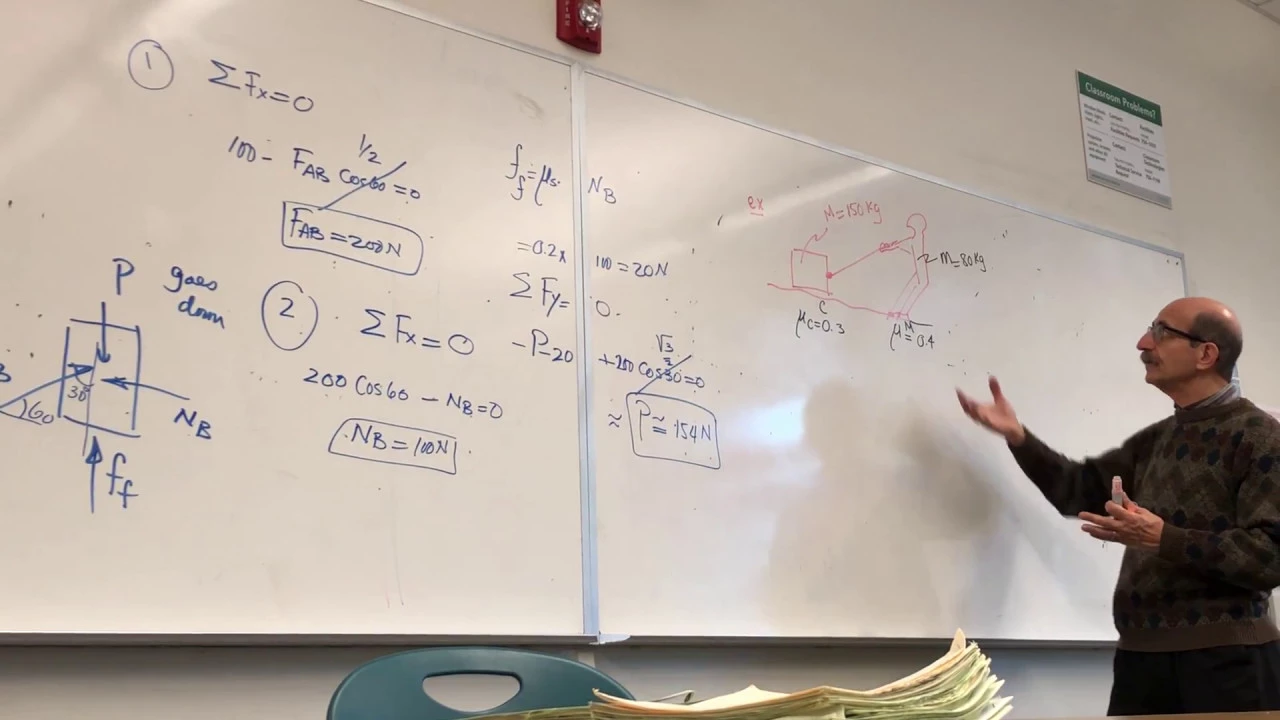 1
ΣFx=0
1/2
100 - FAB Cos60 = 0
FAB = 200N
P goes down
30
60
NB
ff
2
ΣFx = 0
200 Cos60 - NB = 0
NB = 100N
ff = μs NB
= 0.2x 100 = 20N
ΣFy = 0
√3
2
-P-20 +200 Cos30=0
≈ P ≃ 154N
ex
M=150Kg
m=80kg
C
μC=0.3
μM=0.4
FIRE
Classroom Problems?